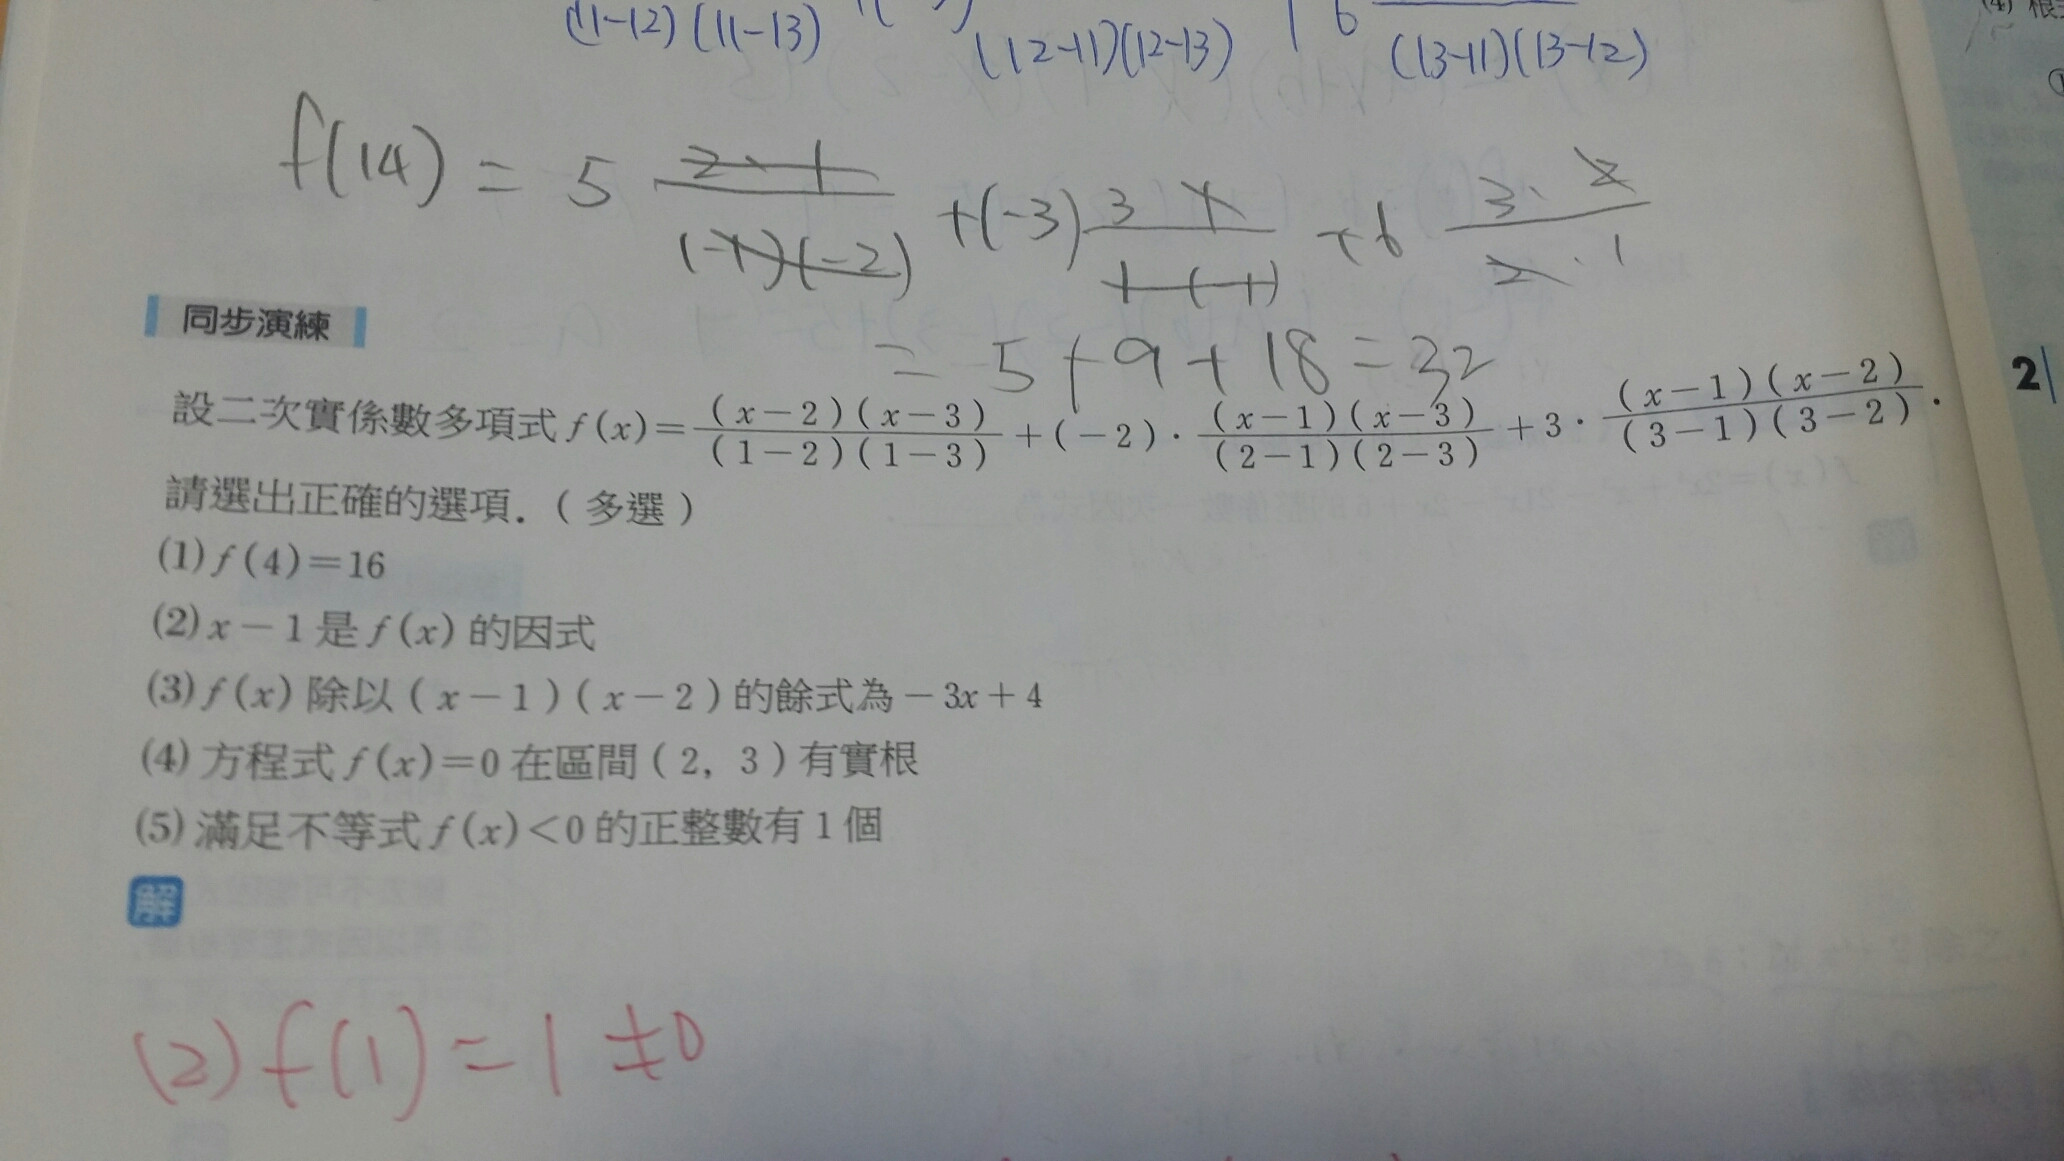 (11-12)(11-13) (12-11)(12-13) 6 (13-11)(13-12)
f(14) = 5 \frac{2·1}{(-1)(-2)} +(-3) \frac{3·1}{1·(-1)} +6 \frac{3·2}{2·1}
= 5+9+18=32
同步演練
設二次實係數多項式 f(x)=\frac{(x-2)(x-3)}{(1-2)(1-3)}+(-2)·\frac{(x-1)(x-3)}{(2-1)(2-3)}+3·\frac{(x-1)(x-2)}{(3-1)(3-2)}.
請選出正確的選項.(多選)
(1) f(4)=16
(2) x-1是f(x)的因式
(3) f(x)除以(x-1)(x-2)的餘式為-3x+4
(4) 方程式f(x)=0在區間(2, 3)有實根
(5) 滿足不等式f(x)<0的正整數有1個
解
(2) f(1)=1≠0
2
(4) 根